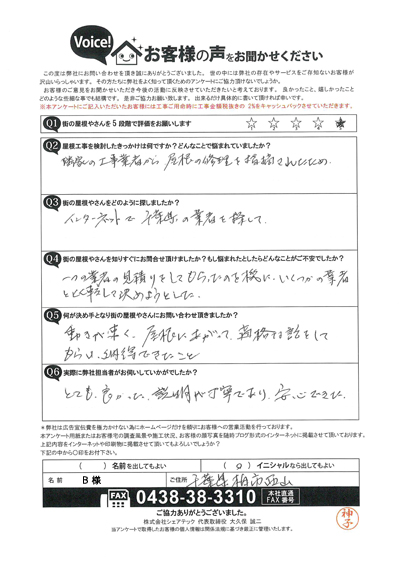 Voice!
お客様の声をお聞かせください
この度は弊社にお問い合わせを頂き誠にありがとうございました。 世の中には弊社の存在やサービスをご存知ないお客様が
沢山いらっしゃいます。 その方たちに弊社をよく知って頂くためのアンケートにご協力頂けないでしょうか。
お客様のご意見をお聞かせいただき今後の活動に反映させていただきたいと考えております。 良かったこと、嬉しかったこと
どのような些細な事でも結構です。 是非ご協力お願い致します。 出来るだけ具体的に書いて頂ければ幸いです。
※本アンケートにご記入いただいたお客様には工事ご用命時に工事金額税抜きの 2%をキャッシュバックさせていただきます。
Q1 街の屋根やさんを 5 段階で評価をお願いします ☆ ☆ ☆ ☆ ★
Q2 屋根工事を検討したきっかけは何ですか？どんなことで悩まれていましたか？
隣家の工事業者から屋根の修理を指摘されたため.
Q3 街の屋根やさんをどのように探しましたか？
インターネットで千葉県の業者を探して.
Q4 街の屋根やさんを知りすぐにお問合せ頂けましたか？もし悩まれたとしたらどんなことがご不安でしたか？
一つの業者の見積りをしてもらったのを機に、いくつかの業者
と比較して決めようとした.
Q5 何が決め手となり街の屋根やさんにお問い合わせ頂きましたか？
動きが速く、屋根に上がって、適格な話をして
もらい、納得できたこと
Q6 実際に弊社担当者がお伺いしていかがでしたか？
とても良かった. 説明が丁寧であり、安心できた.
＊弊社は広告宣伝費を極力かけない為にホームページだけを頼りにお客様への営業活動を行っております。
本アンケート用紙またはお客様宅の調査風景や施工状況、お客様の顔写真を随時ブログ形式のインターネットに掲載させて頂いております。
上記内容をインターネットや印刷物に掲載させて頂いてもよろしいでしょうか？
下記の中から○印をお付下さい。
（　）名前を出してもよい （ ○ ）イニシャルなら出してもよい
名 前 B 様 ご住所 千葉県柏市西山
FAX 0438-38-3310 本社直通 FAX 番号
ご協力ありがとうございました。
株式会社シェアテック 代表取締役 大久保 誠二
当アンケートで取得したお客様の個人情報は関係法規に基づき厳正に管理いたします。
神子